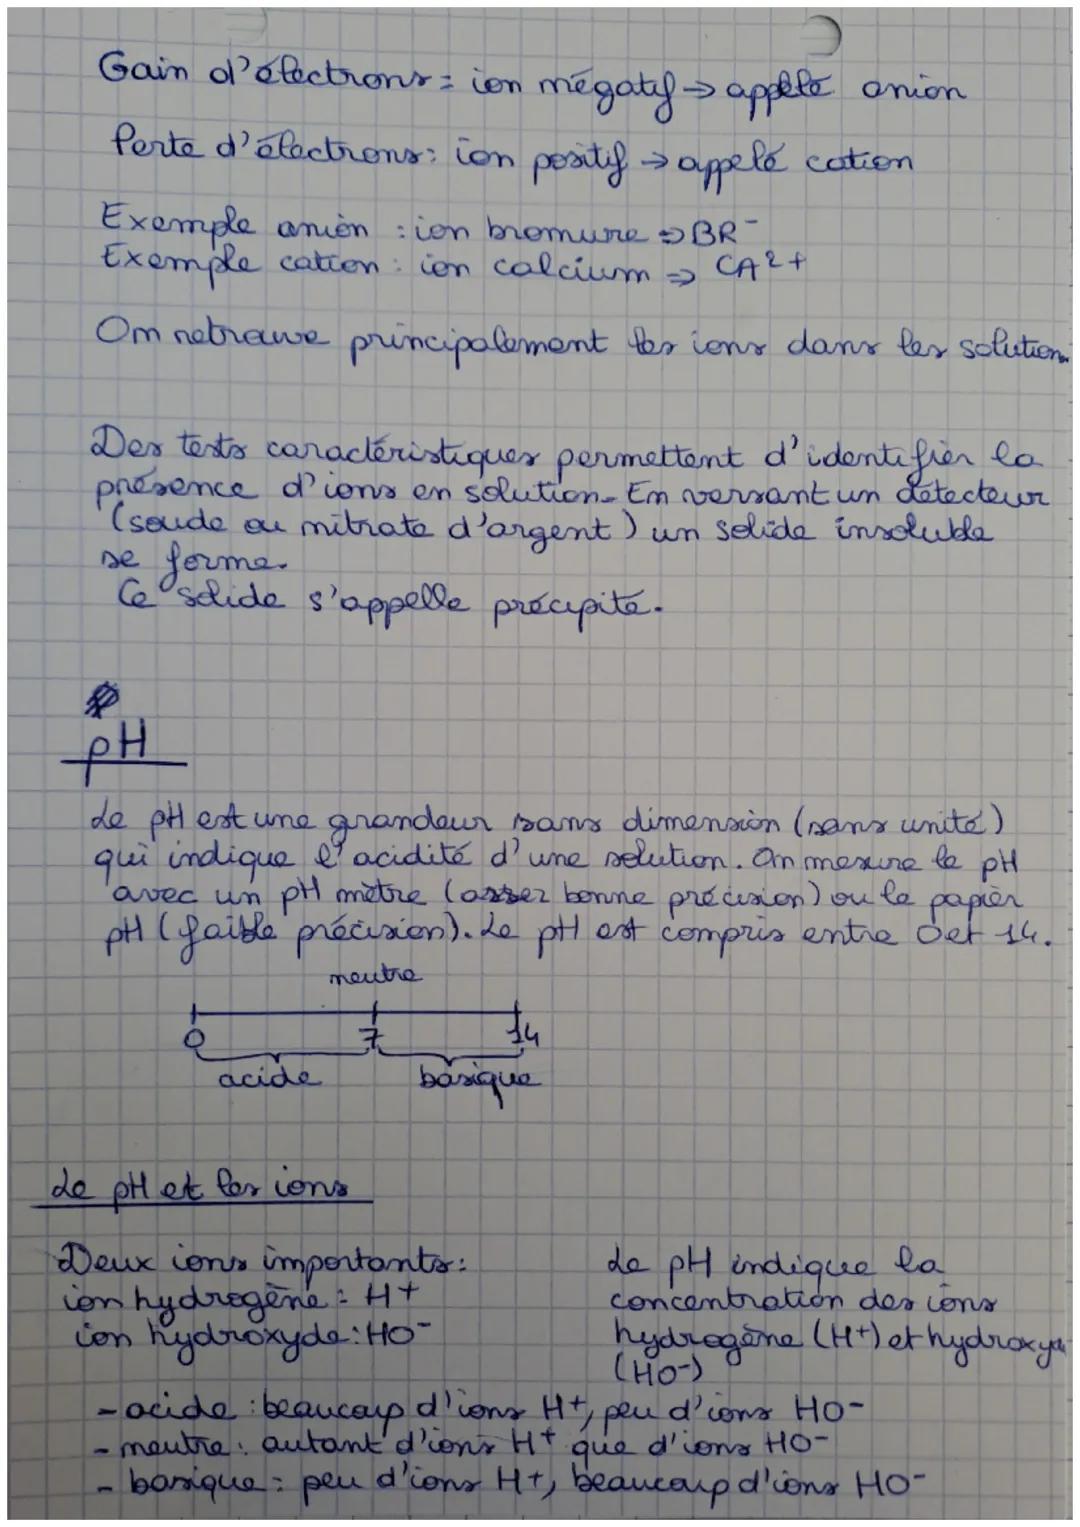 Gain d'électrons = ion négatif → appelé anion
Perte d'électrons : ion positif → appelé cation
Exemple anion : ion bromure ⇒ BR⁻
Exemple cation : ion calcium ⇒ CA²⁺
On retrouve principalement les ions dans les solution.
Des tests caractéristiques permettent d'identifier la
présence d'ions en solution. En versant un détecteur
(soude ou nitrate d'argent) un solide insoluble
se forme.
Ce solide s'appelle précipité.
pH
Le pH est une grandeur sans dimension (sans unité)
qui indique l'acidité d'une solution. On mesure le pH
avec un pH mètre (assez bonne précision) ou le papier
pH (faible précision). Le pH est compris entre 0 et 14.
neutre
0 7 14
acide basique
Le pH et les ions
Deux ions importants :
ion hydrogène : H+
ion hydroxyde : HO⁻
Le pH indique la
concentration des ions
hydrogène (H+) et hydroxy
(HO⁻)
- acide : beaucoup d'ions H+, peu d'ions HO⁻
- neutre : autant d'ions H+ que d'ions HO⁻
- basique : peu d'ions H+, beaucoup d'ions HO⁻